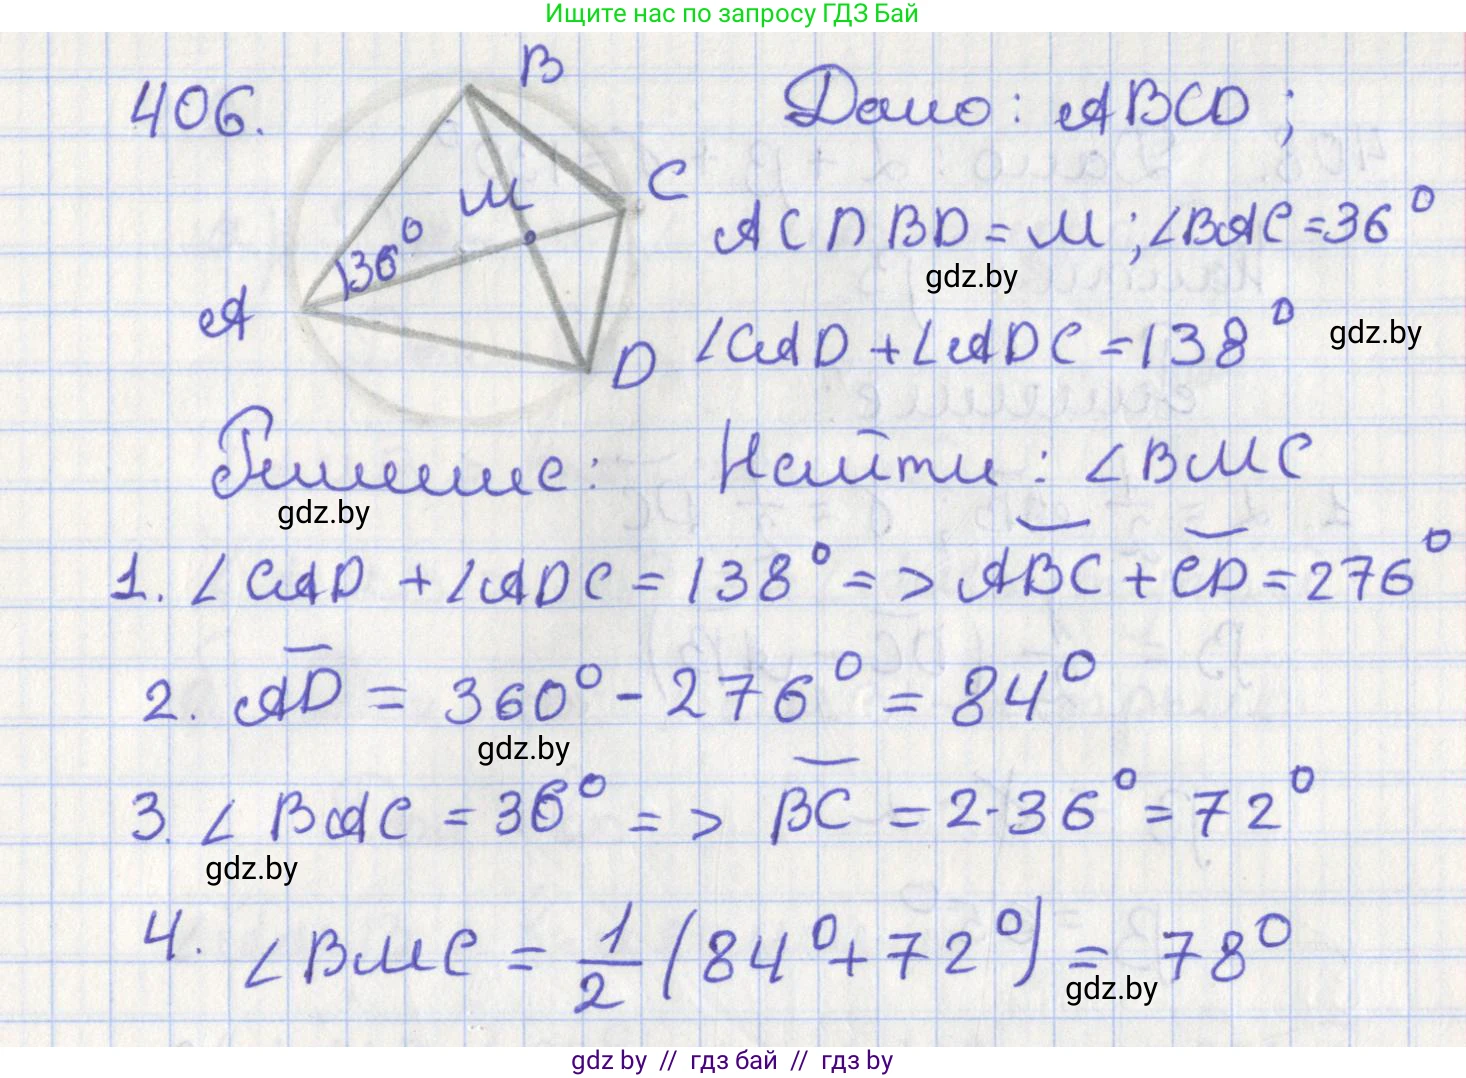 Ищите нас по запросу ГДЗ Бай
406.
B
C
M
36°
A
D
Дано: ABCD;
AC ∩ BD = M; ∠BAC = 36°
gdz.by
∠CAD + ∠ADC = 138°
gdz.by
Решение:
Найти: ∠BMC
gdz.by
1. ∠CAD + ∠ADC = 138° => ABC + CD = 276°
2. AD = 360° - 276° = 84°
gdz.by
3. ∠BAC = 36° => BC = 2·36° = 72°
gdz.by
4. ∠BMC = 1/2 (84° + 72°) = 78°
gdz.by
gdz by // гдз бай // гдз by